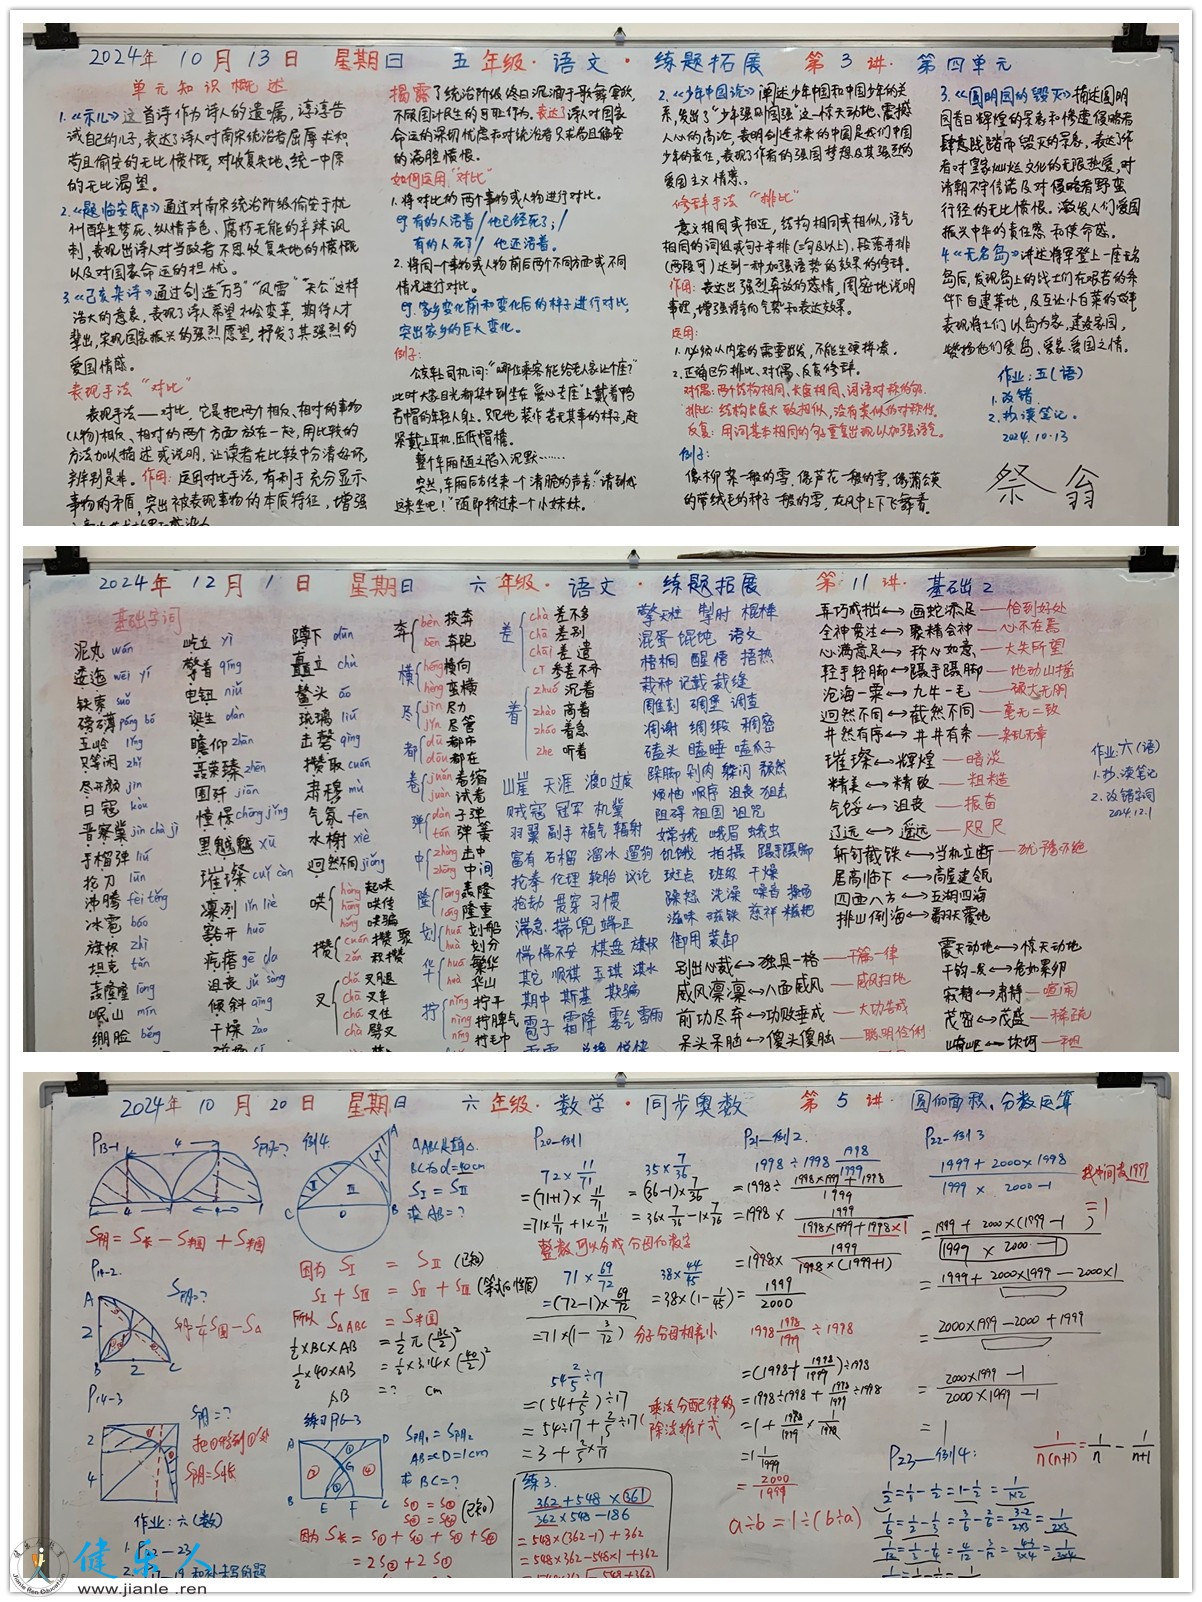 2024年 10月 13日 星期日 五年级·语文·练题拓展 第3讲·第四单元
单元知识概述
1.《示儿》这首诗作为诗人的遗嘱，谆谆告
诫自己的儿子，表达了诗人对南宋统治者屈辱求和、
苟且偷安的无比愤慨，对收复失地、统一中原
的无比渴望。
2.《题临安邸》通过对南宋统治阶级偷安于杭
州醉生梦死、纵情声色、腐朽无能的辛辣讽
刺，表现出诗人对当政者不思收复失地的愤慨
以及对国家命运的担忧。
3.《己亥杂诗》通过创造"万马""风雷""天公"这样
浩大的意象，表现了诗人希望社会变革，期待人才
辈出，实现国家振兴的强烈愿望，抒发了其强烈的
爱国情感。
表现手法"对比"
表现手法——对比，它是把两个相反、相对的事物
(人物)相反、相对的两个方面放在一起，用比较的
方法加以描述或说明，让读者在比较中分清好坏、
辨别是非。作用：运用对比手法，有利于充分显示
事物的矛盾，突出被表现事物的本质特征，增强
揭露了统治阶级终日沉湎于歌舞宴饮，
不顾国计民生的卑耻作为。表达了诗人对国家
命运的深切忧虑和对统治者只求苟且偷安
的满腔愤恨。
如何运用"对比"
1.将对比的两个事物或人物进行对比。
有的人活着/他已经死了；/
有的人死了/他还活着。
2.将同一个事物或人物前后两个不同方面或不同
情况进行对比。
家乡变化前和变化后的样子进行对比，
突出家乡的巨大变化。
例子：
公交车司机问："哪位乘客能给老人家让个座？"
此时大家目光都集中到坐在"爱心专座"上戴着鸭
舌帽的年轻人身上。只见他装作若无其事的样子，赶
紧戴上耳机、压低帽檐。
整个车厢随之陷入沉默……
突然，车厢后方传来一个清脆的声音："请到我
这来坐吧！"随即挤过来一个小妹妹。
2.《少年中国说》阐述少年中国和中国少年的关
系，发出了"少年强则国强"这一惊天动地、震撼
人心的高论，表明创造未来的中国是我们中国
少年的责任，表现了作者的强国梦想及其强烈的
爱国主义情感。
修辞手法"排比"
意义相同或相近，结构相同或相似，语气
相同的词组或句子并排(三句及以上)，段落并排
(两段可)达到一种加强语势的效果的修辞。
作用：表达出强烈奔放的感情，周密地说明
事理，增强语言气势和表达效果。
运用：
1.必须从内容的需要出发，不能生硬拼凑。
2.正确区分排比、对偶、反复修辞。
对偶：两个结构相同、字数相同、词语对称的句。
排比：结构长度大致相似，没有类似的对称性。
反复：用词基本相同的句子重复出现以加强语气。
例子：
像柳絮一般的雪，像芦花一般的雪，像蒲公英
的带绒毛的种子一般的雪，在风中上下飞舞着。
3.《圆明园的毁灭》描述圆明
园昔日辉煌的景象和惨遭侵略者
肆意践踏而毁灭的景象，表达了作
者对皇家灿烂文化的无限热爱，对
清朝不守信诺及对侵略者野蛮
行径的无比愤恨。激发人们爱国
振兴中华的责任感和使命感。
4.《无名岛》讲述将军登上一座无名
岛后，发现岛上的战士们在艰苦的条
件下自建菜地，及互让小白菜的故事，
表现将士们以岛为家、建设家园，
赞扬他们爱岛、爱家、爱国之情。
作业：五(语)
1.改错
2.抄读笔记。
2024.10.13
祭 翁
2024年 12月 1日 星期日 六年级·语文·练题拓展 第11讲·基础2
基础字词
泥丸 wán
逶迤 wēi yí
铁索 suǒ
磅礴 páng bó
五岭 lǐng
尽开颜 jìn
日寇 kòu
晋察冀 jìn chá jì
手榴弹 liú
抡刀 lūn
沸腾 fèi téng
冰雹 báo
旗帜 zhì
坦克 tǎn
轰隆隆 lóng
岷山 mín
绷脸 běng
屹立 yì
擎着 qíng
电钮 niǔ
诞生 dàn
瞻仰 zhān
聂荣臻 zhēn
围歼 jiān
憧憬 chōng jǐng
黑魆魆 xū
璀璨 cuǐ càn
凛冽 lǐn liè
豁开 huō
疙瘩 gē da
沮丧 jǔ sàng
倾斜 qīng
干燥 zào
蹲下 dūn
矗立 chù
鳌头 áo
琉璃 liú
击磬 qìng
攒取 cuán
肃穆 mù
气氛 fēn
水榭 xiè
迥然不同 jiǒng
哄 hōng 起哄
hōng 哄传
hǒng 哄骗
攒 cuán 攒聚
zǎn 积攒
叉 chǎ 叉腿
chā 叉车
chá 叉住
chà 劈叉
奔 bèn 投奔
bēn 奔跑
横 héng 横向
hèng 蛮横
尽 jìn 尽力
jǐn 尽管
都 dū 都市
dōu 都在
卷 juǎn 卷缩
juàn 试卷
弹 dàn 子弹
tán 弹簧
中 zhòng 击中
zhōng 中间
隆 lōng 轰隆
lóng 隆重
划 huá 划船
huà 划分
华 huá 繁华
huà 华山
拧 nǐng 拧干
nìng 拧脾气
níng 拧毛巾
差 chà 差不多
chā 差别
chāi 差遣
cī 参差不齐
着 zhuó 沉着
zhāo 高着
zháo 着急
zhe 听着
擎天柱 掣肘 棍棒
混蛋 馄饨 语文
梧桐 醒悟 捂热
栽种 记载 裁缝
雕刻 碉堡 调查
凋谢 绸缎 稠密
磕头 瞌睡 嗑瓜子
跺脚 剁肉 躲闪
山崖 天涯 渡口 过度
贼寇 冠军 机冀
羽翼 副手 福气 辐射
富有 石榴 溜冰 遛狗
抡拳 伦理 轮胎 议论
抢劫 贯穿 习惯
湍急 揣 端正
惴惴不安 棋盘 旗帜
其它 顺祺 玉琪 淇水
期中 斯基 欺骗
雹子 霜降 雾气 雷雨
烦恼 顺序 沮丧 狙击
阻碍 祖国 诅咒
嫦娥 峨眉 蛾虫
饥饿 拍摄 蹑手蹑脚
斑点 班级 干燥
躁怒 洗澡 噪音 操场
滋味 磁铁 慈祥 糍粑
御用 装卸
弄巧成拙↔画蛇添足—恰到好处
全神贯注↔聚精会神—心不在焉
心满意足↔称心如意—大失所望
轻手轻脚↔蹑手蹑脚—地动山摇
沧海一粟↔九牛一毛—硕大无朋
迥然不同↔截然不同—毫无二致
井然有序↔井井有条—杂乱无章
璀璨↔辉煌—暗淡
精美↔精致—粗糙
气馁↔沮丧—振奋
辽远↔遥远—咫尺
斩钉截铁↔当机立断—犹豫不绝
居高临下↔高屋建瓴
四面八方↔五湖四海
排山倒海↔翻天覆地
别出心裁↔独具一格—千篇一律
威风凛凛↔八面威风—威风扫地
前功尽弃↔功败垂成—大功告成
呆头呆脑↔傻头傻脑—聪明伶俐
震天动地↔惊天动地
千钧一发↔危如累卵
寂静↔肃静—喧闹
茂密↔茂盛—稀疏
崎岖↔坎坷—平坦
作业：六(语)
1.抄读笔记
2.改错字词
2024.12.1
2024年 10月 20日 星期日 六年级·数学·同步奥数 第5讲·圆的面积、分数运算
P13-1 S阴=?
4
4 4
S阴=S长-S半圆+S半圆
P14-2.
A
2
B 2 C
S阴=?
S阴=¼S圆-S△
P14-3
2
4
S阴=?
S阴=S长
作业：六(数)
例4.
A
Ⅰ Ⅱ Ⅲ
C O B
△ABC是直角△
BC为d=40cm
SⅠ=SⅡ
求AB=?
因为 SⅠ = SⅡ (已知)
SⅠ+SⅢ = SⅡ+SⅢ (等式的性质)
所以 S△ABC = S半圆
½×BC×AB = ½π(BC/2)²
½×40×AB = ½×3.14×(40/2)²
AB =? cm
练习P16-3
A D
G
B E F C
S阴1=S阴2
AB=CD=1cm
求BC=?
(已知)
P20-例1
72×11/71
=(71+1)×11/71
=71×11/71+1×11/71
35×7/36
=(36-1)×7/36
=36×7/36-1×7/36
整数可以分成分母的数字
71×69/72
=(72-1)×69/72
=71×(1-3/72)
38×44/45
=38×(1-1/45)
分子分母相差小
54 2/5÷17
=(54+2/5)÷17
=54÷17+2/5÷17
乘法分配律的
除法推广式
练3.
(362+548×361)/(362×548-186)
=548×(362-1)+362
=548×362-548×1+362
P21-例2.
1998÷1998 1998/1999
=1998÷(1998×1999+1998)/1999
=1998×1999/(1998×1999+1998×1)
=1998×1999/(1998×(1999+1))
=1999/2000
1998 1998/1999÷1998
=(1998+1998/1999)÷1998
=1998÷1998+1998/1999÷1998
=1+1998/1999×1/1998
=1 1/1999
=2000/1999
a÷b=1÷(b÷a)
P22-例3
(1999+2000×1998)/(1999×2000-1)
找中间数1999
=(1999+2000×(1999-1))/(1999×2000-1)
=1
=1999+2000×1999-2000×1
=2000×1999-2000+1999
=(2000×1999-1)/(2000×1999-1)
=1
P23-例4:
1/n(n+1)=1/n-1/(n+1)
1/2=1/1-1/2=1-1/2=1/1×2
1/6=1/2-1/3=3/6-2/6=(3-2)/2×3=1/2×3
1/12=1/3-1/4=4/12-3/12=(4-3)/3×4=1/3×4
健乐人
www.jianle.ren